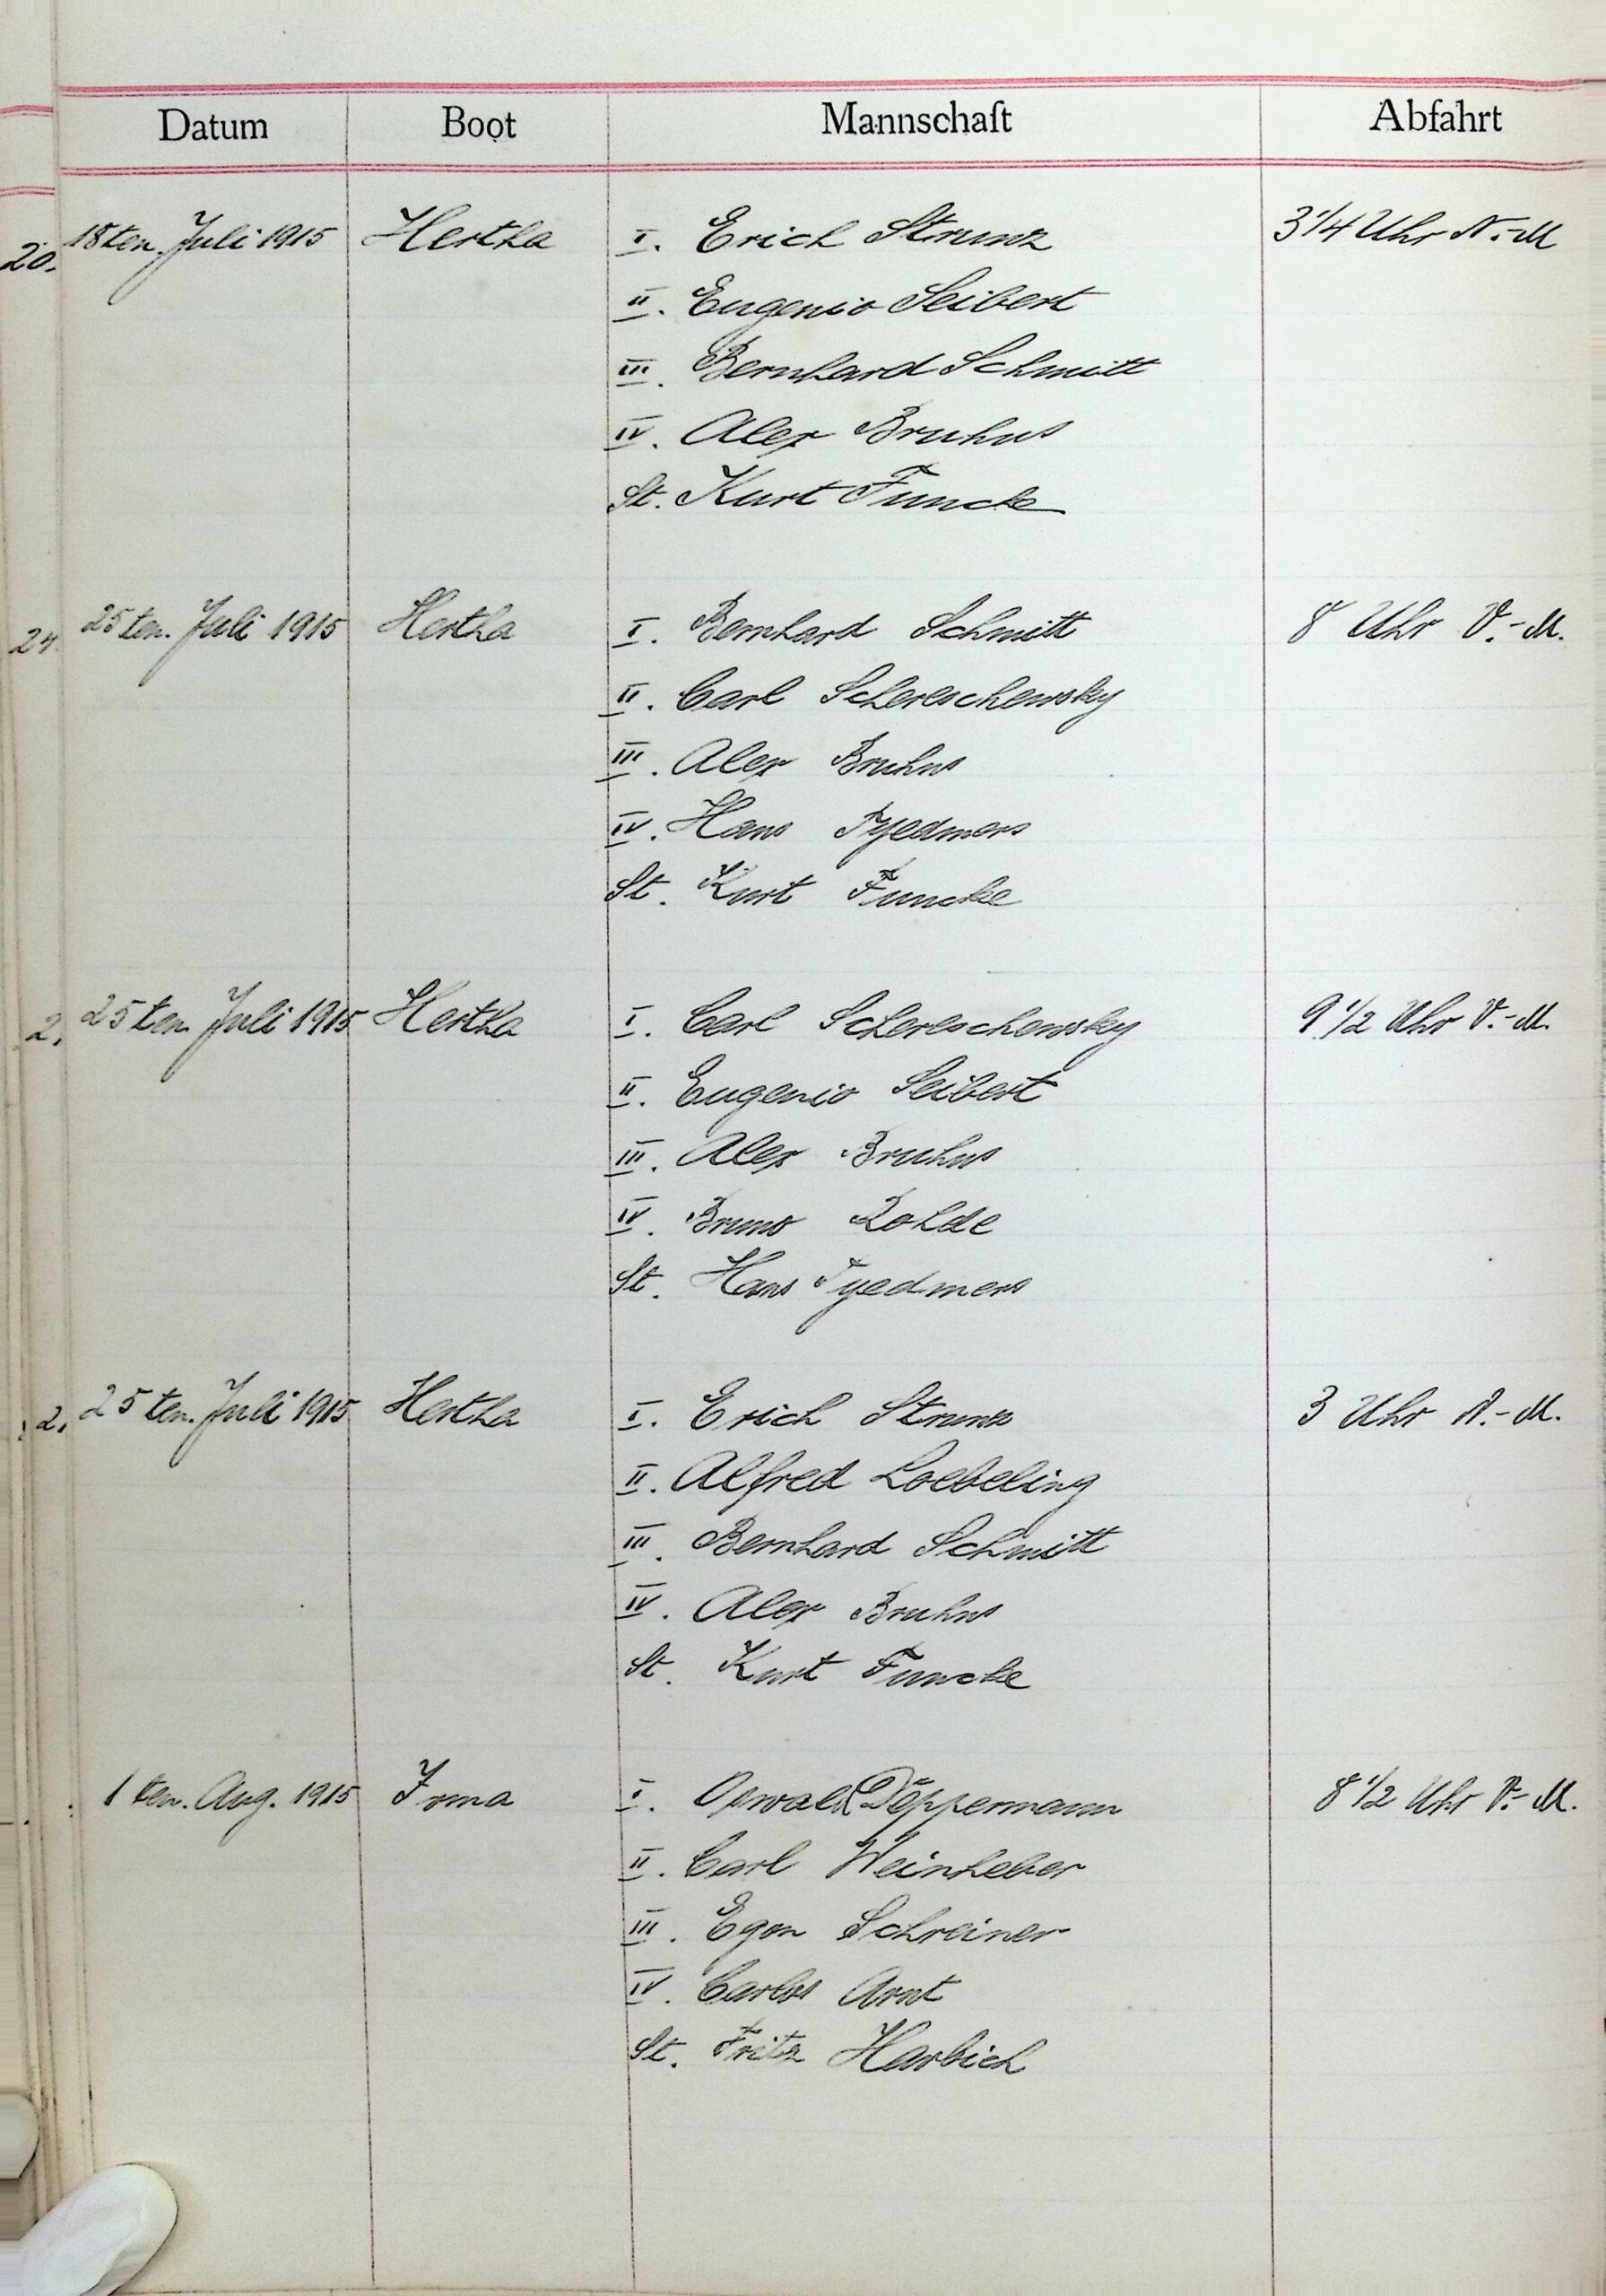 Datum Boot Mannschaft Abfahrt
18ten. Juli 1915 Hertha I. Erich Strunz 3 1/4 Uhr N.-M
II. Eugenio Seibert
III. Bernhard Schmitt
IV. Alex Bruhns
St. Kurt Funcke
25ten. Juli 1915 Hertha I. Bernhard Schmitt 8 Uhr V.-M.
II. Carl Schereschewsky
III. Alex Bruhns
IV. Hans Tyedmers
St. Kurt Funcke
25ten. Juli 1915 Hertha I. Carl Schereschewsky 9 1/2 Uhr V.-M.
II. Eugenio Seibert
III. Alex Bruhns
IV. Bruno Rohde
St. Hans Tyedmers
25ten. Juli 1915 Hertha I. Erich Strunz 3 Uhr N.-M.
II. Alfred Loebeling
III. Bernhard Schmitt
IV. Alex Bruhns
St. Kurt Funcke
1ten. Aug. 1915 Irma I. Oswald Döppermann 8 1/2 Uhr V.-M.
II. Carl Weinheber
III. Egon Schreiner
IV. Carlos Arnt
St. Fritz Harbich